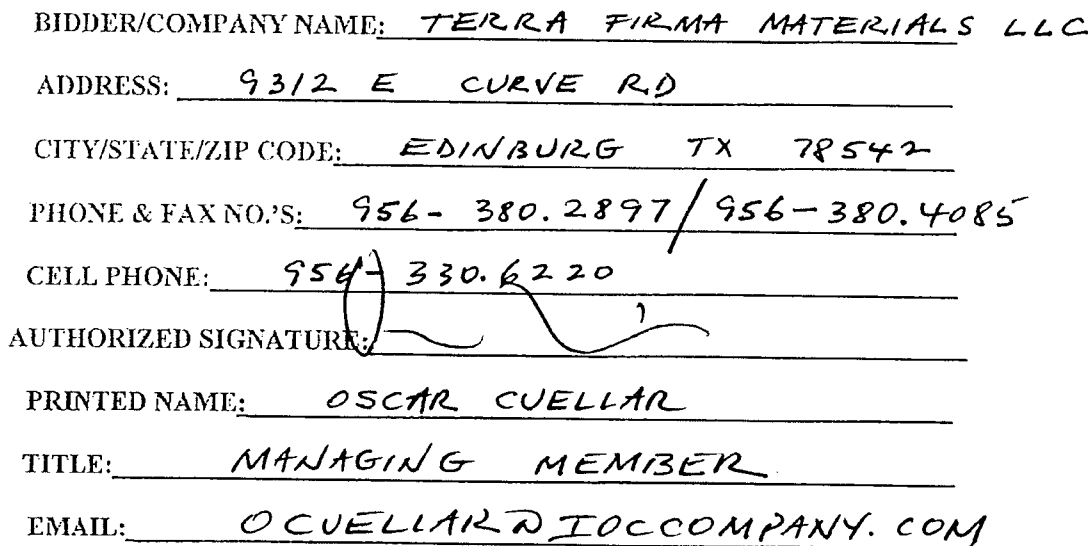 BIDDER/COMPANY NAME: TERRA FIRMA MATERIALS LLC
ADDRESS: 9312 E CURVE RD
CITY/STATE/ZIP CODE: EDINBURG TX 78542
PHONE & FAX NO.'S: 956-380.2897/956-380.4085
CELL PHONE: 956-330.6220
AUTHORIZED SIGNATURE:
PRINTED NAME: OSCAR CUELLAR
TITLE: MANAGING MEMBER
EMAIL: OCUELLAR@IOCCOMPANY.COM